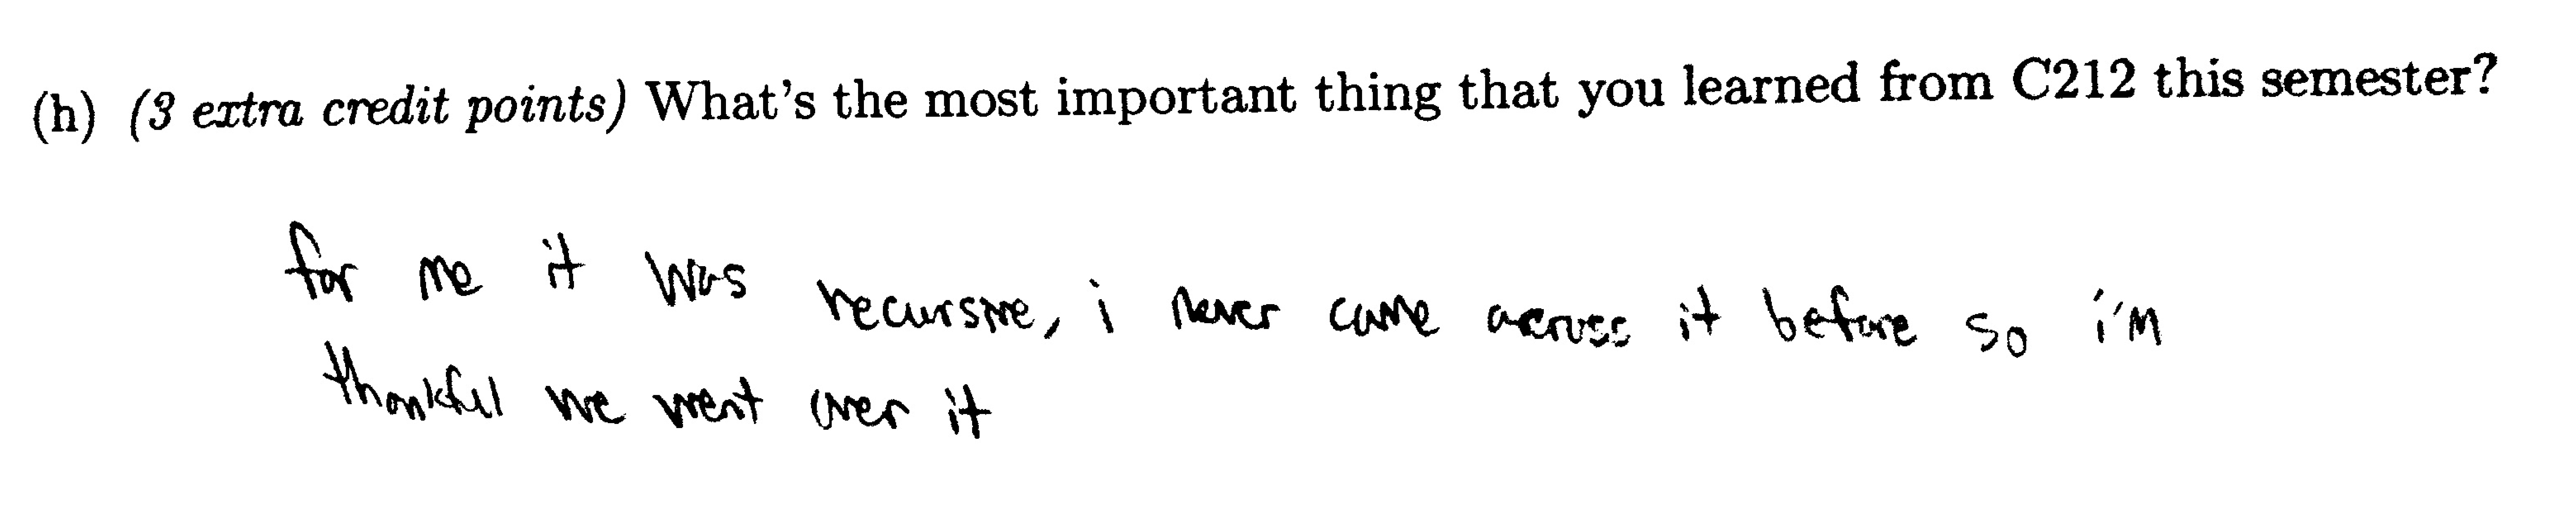 (h) (3 extra credit points) What's the most important thing that you learned from C212 this semester?
for me it was recursive, i never came across it before so i'm
thankful we went over it